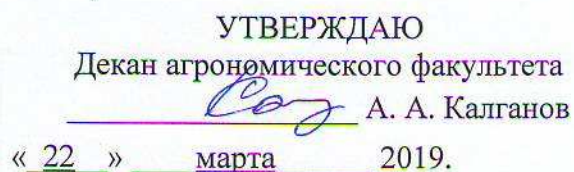 УТВЕРЖДАЮ
Декан агрономического факультета
А. А. Калганов
« 22 » марта 2019.